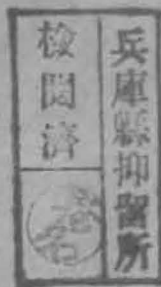 兵庫縣抑留所
檢閲濟